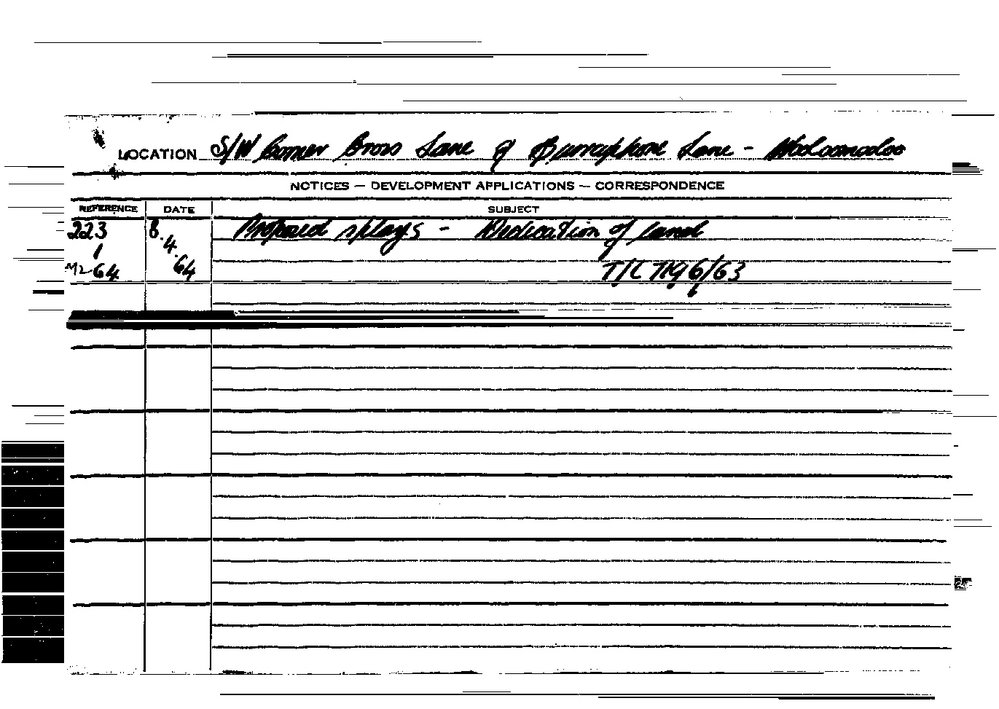 LOCATION S/W Corner Cross Lane & Burrahpore Lane - Wooloomooloo
NOTICES — DEVELOPMENT APPLICATIONS — CORRESPONDENCE
REFERENCE DATE SUBJECT
223 / M2 64 8.4.64 Proposed splays - Dedication of land
T/C 7196/63